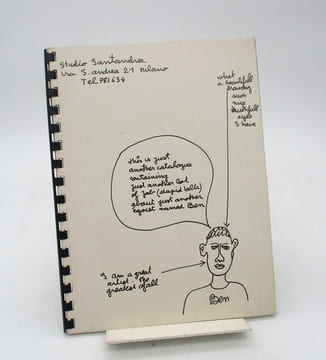 Studio Santandrea
Via S. andrea 21 milano
Tel 781634
what
a beautifull
drawing
such
nice
thruthfull
eyes
I have
this is just
another catalogue
containing
just another lot
of Jab (stupid talk)
about just another
egoist named Ben
I am a great
artist the
greatest of all
Ben